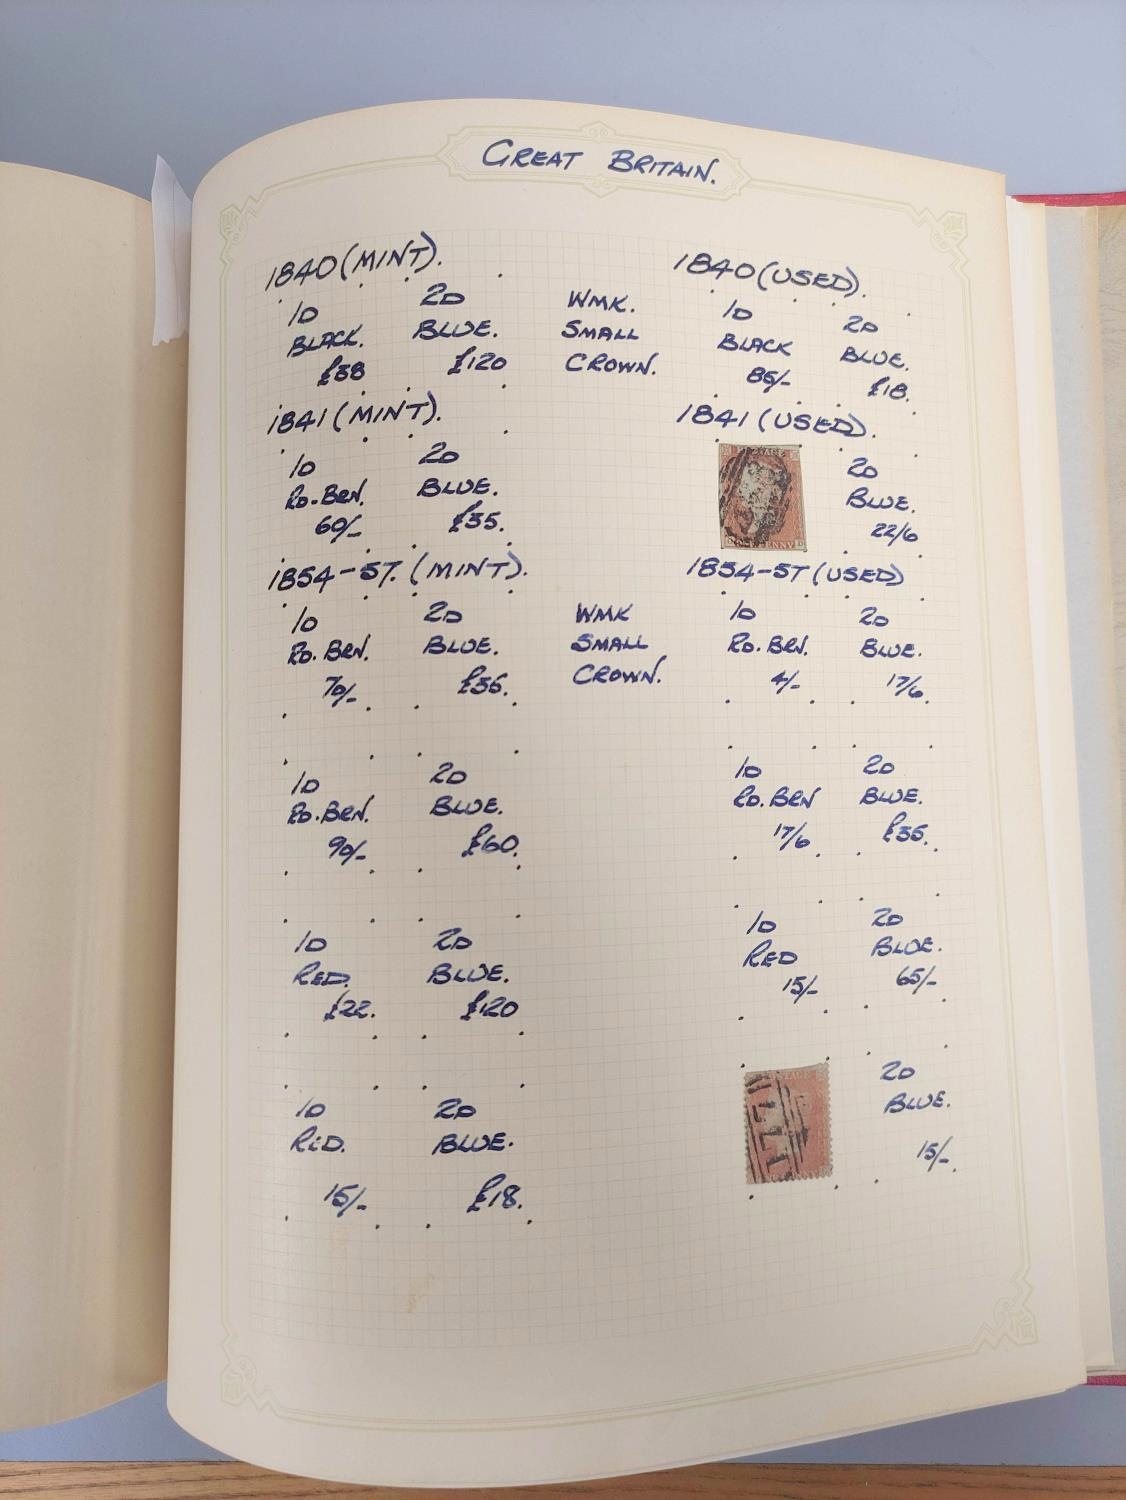 GREAT BRITAIN.
1840 (MINT). 1840 (USED).
1D 2D WMK. 1D 2D
BLACK. BLUE. SMALL BLACK BLUE.
£38 £120 CROWN. 85/- £18.
1841 (MINT). 1841 (USED).
1D 2D 2D
RD.-BRN. BLUE. BLUE.
60/- £35. 22/6
1854-57. (MINT). 1854-57 (USED)
1D 2D WMK 1D 2D
RD. BRN. BLUE. SMALL RD. BRN. BLUE.
70/- £35. CROWN. 4/- 17/6
1D 2D 1D 2D
RD. BRN. BLUE. RD. BRN BLUE.
90/- £60. 17/6 £35.
1D 2D 1D 2D
RED. BLUE. RED BLUE.
£22. £120 15/- 65/-
1D 2D 2D
RED. BLUE. BLUE.
15/- £18. 15/-
POSTAGE
PENNY
POSTAGE
177